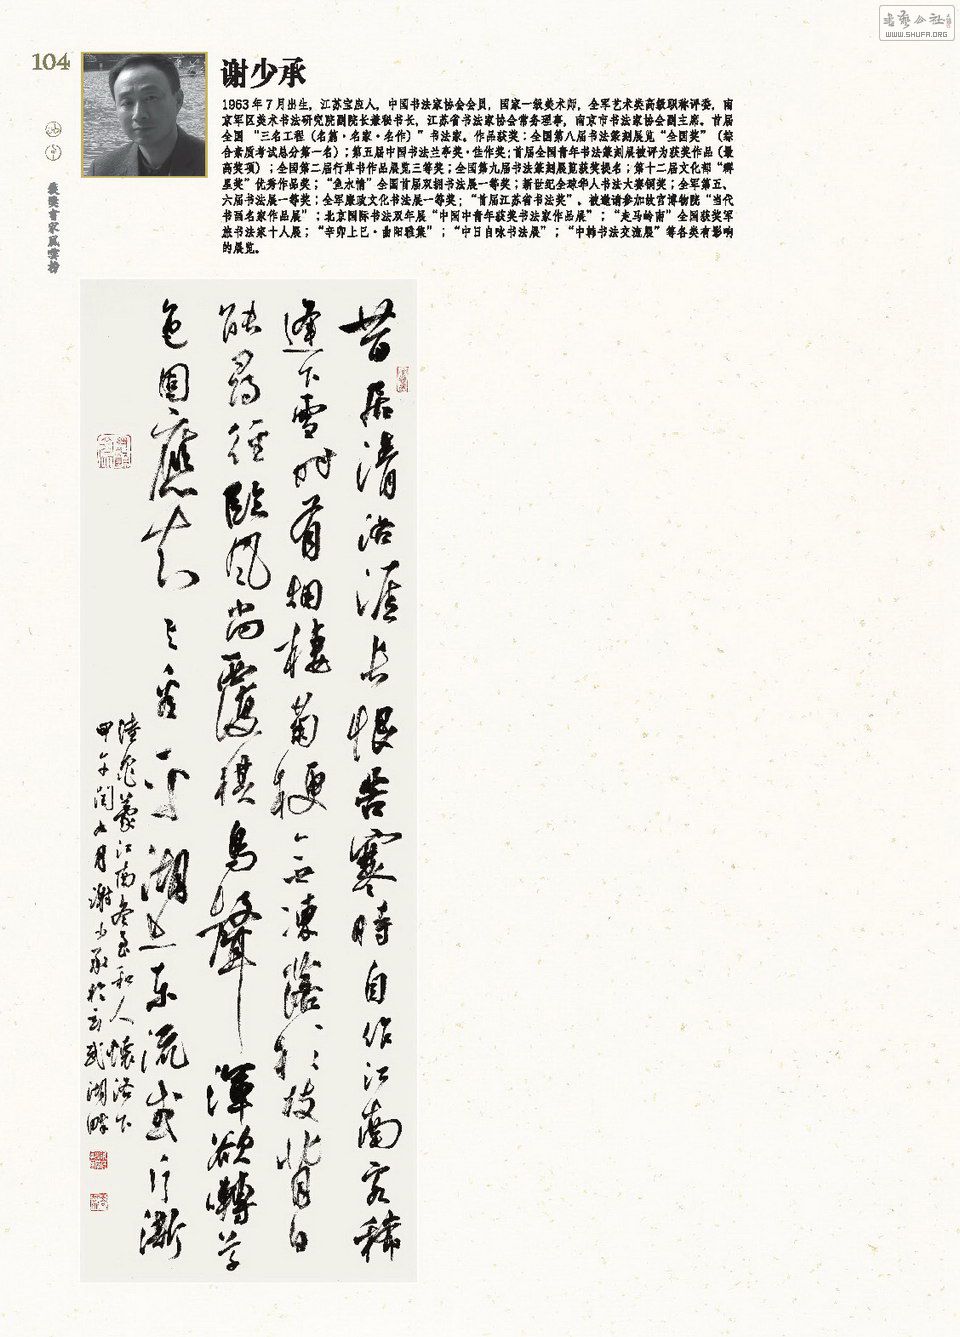 书艺公社
WWW.SHUFA.ORG
104
获奖书家风云榜
谢少承
1963年7月出生，江苏宝应人。中国书法家协会会员，国家一级美术师，全军艺术类高级职称评委，南
京军区美术书法研究院副院长兼秘书长，江苏省书法家协会常务理事，南京市书法家协会副主席。首届
全国“三名工程（名篇·名家·名作）”书法家。作品获奖：全国第八届书法篆刻展览“全国奖”（综
合素质考试总分第一名）；第五届中国书法兰亭奖·佳作奖；首届全国青年书法篆刻展被评为获奖作品（最
高奖项）；全国第二届行草书作品展览三等奖；全国第九届书法篆刻展览获奖提名；第十二届文化部“群
星奖”优秀作品奖；“鱼水情”全国首届双拥书法展一等奖；新世纪全球华人书法大赛铜奖；全军第五、
六届书法展一等奖；全军廉政文化书法展一等奖；“首届江苏省书法奖”。被邀请参加故宫博物院“当代
书画名家作品展”；北京国际书法双年展“中国中青年获奖书法家作品展”；“走马岭南”全国获奖军
旅书法家十人展；“辛卯上巳·曲阳雅集”；“中日自咏书法展”；“中韩书法交流展”等各类有影响
的展览。
昔居清洛涯长恨苦寒时自作江南客稀
逢下雪时有烟栖菊梗无冻落杉枝背日
能寻径临风尚覆棋鸟声浑欲啭草
色固应知与看平湖上东流或片澌
陆龟蒙江南冬至和人怀洛下
甲午闰九月谢少承於玄武湖畔